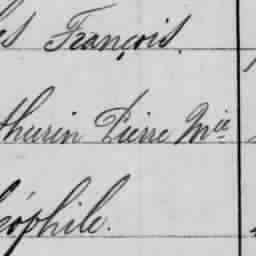 es François.
thurin Pierre Mie
éophile.